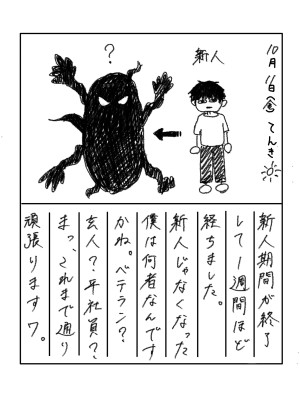 10月11日(金) てんき
新人
?
新人期間が終了
して1週間ほど
経ちました。
新人じゃなくなった
僕は何者なんです
かね。ベテラン?
玄人?平社員??
まっ、これまで通り
頑張りますワ。